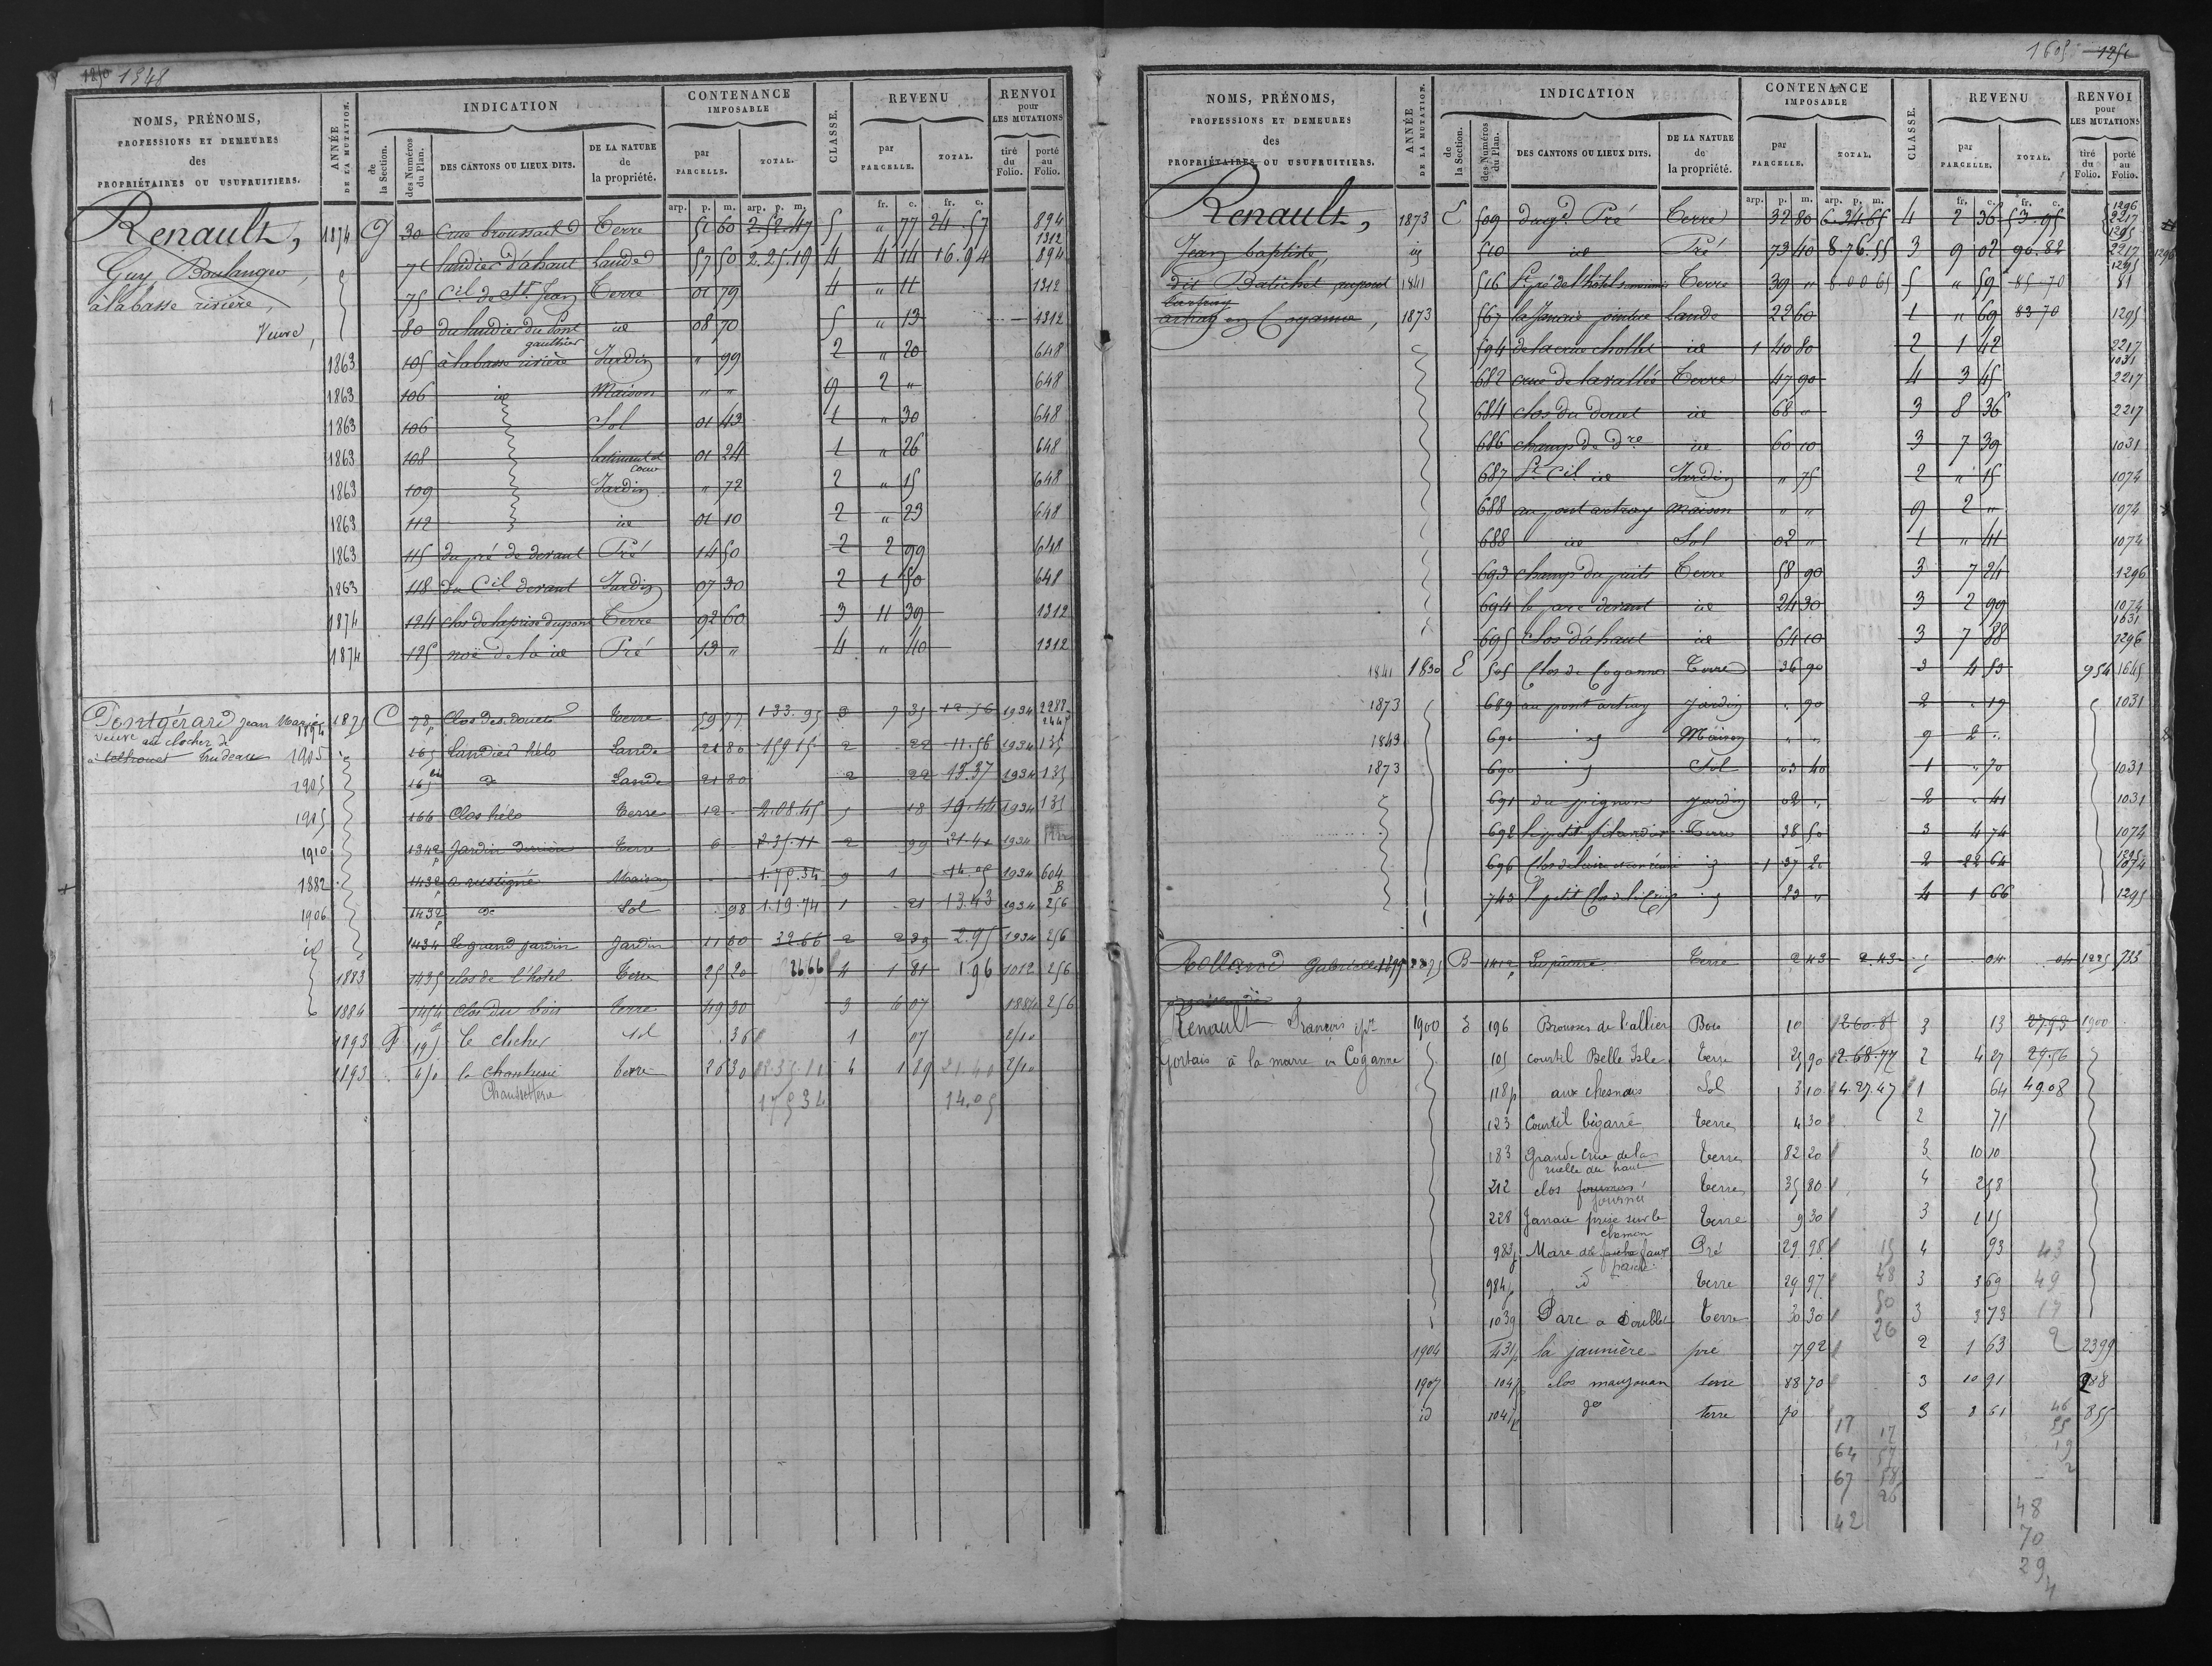 1250 1348
NOMS, PRÉNOMS, PROFESSIONS ET DEMEURES des PROPRIÉTAIRES OU USUFRUITIERS.
ANNÉE DE LA MUTATION.
INDICATION
de la Section.
des Numéros du Plan.
DES CANTONS OU LIEUX DITS.
DE LA NATURE de la propriété.
CONTENANCE IMPOSABLE
par PARCELLE.
TOTAL.
CLASSE.
REVENU
par PARCELLE.
TOTAL.
RENVOI pour LES MUTATIONS
tiré du Folio.
porté au Folio.
arp. p. m. arp. p. m. fr. c. fr. c.
Renault, 1874 G 30 Crue broussail Terre 51 60 2.52.47 5 " 77 24.57 894
1312
Guy Boulanger, 71 landier d'ahaut Lande 57 50 2.25.19 4 4 14 16.94 894
à la basse rivière, 75 Cil de St. Jean Terre 01 79 4 " 11 1312
Veuve, 80 du landier du Pont gauthier id 08 70 5 " 13 1312
1863 105 à la basse rivière Jardin " 99 2 " 20 648
1863 106 id Maison " " 9 2 " 648
1863 106 Sol 01 43 1 " 30 648
1863 108 batiment et cour 01 24 1 " 26 648
1863 109 Jardin " 72 2 " 15 648
1863 112 id 01 10 2 " 23 648
1863 115 du pré de devant Pré 14 50 2 2 99 648
1863 118 du Cil devant Jardin 07 30 2 1 50 648
1874 124 clos de la prise du pont Terre 92 60 3 11 39 1312
1874 125 noë de la id Pré 13 " 4 " 40 1312
Pontgérard Jean Marie 1875 C 78p Clos des douets Terre 59 77 1.33.95 3 7 35 12.56 1934 2288
veuve au clocher de 1894
à Trudeau 1905 165 Landier hélo Lande 21 80 1 59 15 2 22 11.56 1934 135
1905 165bis do Lande 21 80 2 22 13.37 1934 135
1905 166 Clos hélo Terre 12 - 2.08.45 5 18 19.44 1934 135
1910 1342p Jardin derrière Terre 6 - 2.35.11 2 99 21.40 1934
1882 1432p a rustigné Maison 1.75.34 9 1 14.05 1934 604
B
1906 1432p do Sol 98 1.19.74 1 21 13.43 1934 256
id 1434 Le grand jardin Jardin 11 60 32.66 2 2 39 2.95 1934 256
1883 1435 clos de l'hotel Terre 25 20 26 66 4 1 81 1 96 1012 256
1884 1454 clos du bois Terre 49 30 3 6 07 1884 256
1893 F 195 le clocher sol .36 1 07 210
1893 410 la Chantusié Terre 26 30 2.35.11 4 1 89 21 40 210
17534 14.05
1605 1251
NOMS, PRÉNOMS, PROFESSIONS ET DEMEURES des PROPRIÉTAIRES OU USUFRUITIERS.
ANNÉE DE LA MUTATION.
INDICATION
de la Section.
des Numéros du Plan.
DES CANTONS OU LIEUX DITS.
DE LA NATURE de la propriété.
CONTENANCE IMPOSABLE
par PARCELLE.
TOTAL.
CLASSE.
REVENU
par PARCELLE.
TOTAL.
RENVOI pour LES MUTATIONS
tiré du Folio.
porté au Folio.
arp. p. m. arp. p. m. fr. c. fr. c.
1296
Renault, 1873 E 509 du gd. Pré Terre 32 80 6.34.65 4 2 36 53.95 2217
1295
Jean baptiste, id 510 id Pré 73 40 8.76.55 3 9 02 90.82 2217 1296
1295
dit Batichel, au pont 1841 516 Terre 39 " 8.00.65 5 " 59 85.70 81
artray en Coganne, 1873 567 la Janaie pointue Lande 22 60 1 " 69 83 70 1295
594 de la crue chollet id 1 40 80 2 1 42 2217
1031
682 crue de la vallée Terre 47 90 4 3 45 2217
684 clos du douet id 68 " 3 8 36 2217
686 champ de dre id 60 10 3 7 39 1031
687 Pt. Cil id Jardin " 75 2 " 15 1074
688 au pont artray maison " " 9 2 " 1074
688 id Sol 02 " 1 " 41 1074
693 champ du puits Terre 58 90 3 7 24 1296
694 le parc devant id 24 30 3 2 99 1074
1031
695 clos d'ahaut id 64 10 3 7 88 1296
1841 1830 E 505 Clos de Coganne Terre 36 90 3 4 53 954 1645
1873 689 au pont artray Jardin " 90 2 " 19 1031
1843 690 id Maison " " 9 2 "
1873 690 id Sol 03 40 1 " 70 1031
691 du pignon Jardin 02 " 2 " 41 1031
692 Terre 38 50 3 4 74 1074
1295
696 id 1 37 20 2 22 64 1074
743 le petit Clos id 23 " 4 1 66 1295
Rolland Gabriel 1899 B 1412p Terre 2 43 2.43 5 04 04 1225 733
Renault François épx 1900 E 196 Brousses de l'allier Bois 10 1 260.81 3 13 27.93 1900
Gortais à la marre en Coganne 105 courtil Belle Isle Terre 25 90 2.68.77 2 4 27 29.56
118p aux chesnais Sol 3 10 4.27.47 1 64 49 08
123 Courtil bigarré Terre 4 30 2 71
183 Grande crue de la ruelle du haut Terre 82 20 3 10 10
212 clos fournier Terre 35 80 4 2 58
228 Janaie prise sur le chemin Terre 9 30 3 1 15
983p Mare de Pré 29 98 15 4 93 43
984p do Terre 29 97 48 3 3 69 49
1039 Parc a Doublet Terre 30 30 50 3 3 73 17
26
1904 431p la jaunière pré 7 92 2 1 63 2 2399
1907 1047p clos maujouan terre 88 70 3 10 91 288
id 1047p do terre 70 3 8 61 46 855
17 17 55
64 57 19
67 58 2
26
42
48
70
29